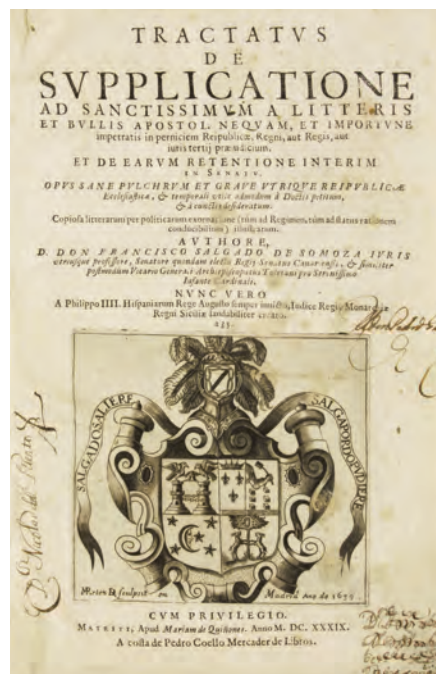 TRACTATVS
DE
SVPPLICATIONE
AD SANCTISSIMVM A LITTERIS
ET BVLLIS APOSTOL. NEQVAM, ET IMPORTVNE
impetratis in perniciem Reipublicæ, Regni, aut Regis, aut
iuris tertij præiudicium.
ET DE EARVM RETENTIONE INTERIM
IN SENATV.
OPVS SANE PVLCHRVM ET GRAVE VTRIQVE REIPVBLICÆ
Ecclesiasticæ, & temporali vtile admodum à Doctis petitum,
& à cunctis desideratum.
Copiosa litterarum per politicarum
AVTHORE,
D. DON FRANCISCO SALGADO DE SOMOZA IVRIS
vtriusque professore, Senatore quondam electo Regij Senatus Canariensis, & similiter
postmodum Vicario Generali Archiepiscopatus Toletani pro Serenissimo
Infante Cardinale.
NVNC VERO
A Philippo IIII. Hispaniarum Rege Augusto semper inuicto, Iudice Regiæ Monarchiæ
Regni Siciliæ laudabiliter creato.
SALGADO SALIERE
SALGA PORDO PVDIERE
sculpsit en Madrid Año de 1639
CVM PRIVILEGIO.
MATRITI, Apud Mariam de Quiñones. Anno M. DC. XXXIX.
A costa de Pedro Coello Mercader de Libros.